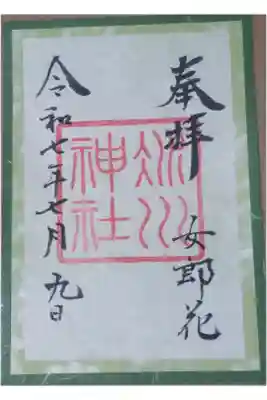 奉拝
女郎花
氷川
神社
令和七年七月九日